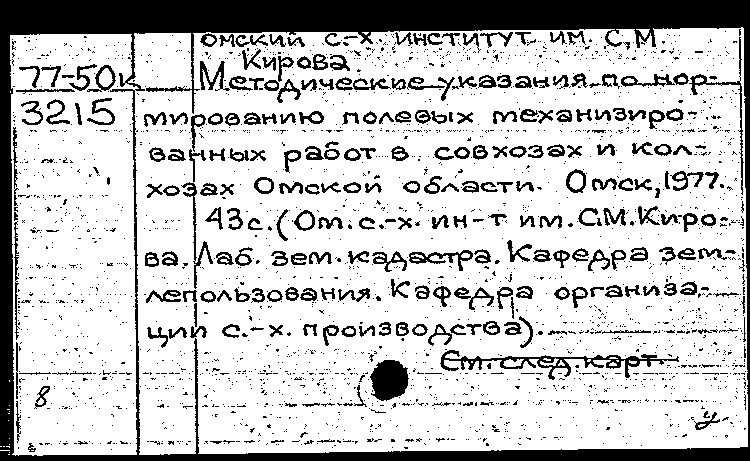 Омский с.-х. институт им. С.М.
Кирова
77-50к Методические указания по нор-
3215 мированию полевых механизиро-
ванных работ в совхозах и кол-
хозах Омской области. Омск, 1977.
43с. (Ом. с.-х. ин-т им. С.М. Киро-
ва. Лаб. зем. кадастра. Кафедра зем-
лепользования. Кафедра организа-
ции с.-х. производства).
См. след. карт.
8
у